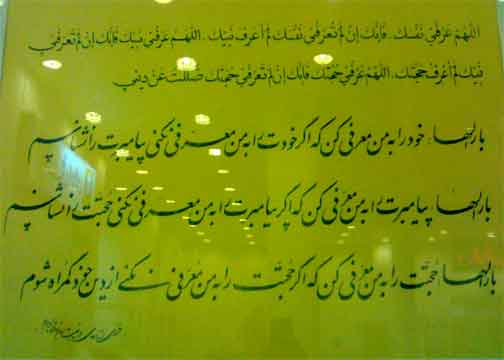 اللهم عرفني نفسك، فانك ان لم تعرفني نفسك لم أعرف نبيك، اللهم عرفني نبيك فانك ان لم تعرفني
نبيك لم أعرف حجتك، اللهم عرفني حجتك فانك ان لم تعرفني حجتك ضللت عن ديني
بارالها، خود را به من معرفی کن که اگر خودت را به من معرفی نکنی پیامبرت را نشناسم
بارالها، پیامبرت را به من معرفی کن که اگر پیامبرت را به من معرفی نکنی حجتت را نشناسم
بارالها حجتت را به من معرفی کن که اگر حجتت را به من معرفی نکنی از دین خود گمراه شوم